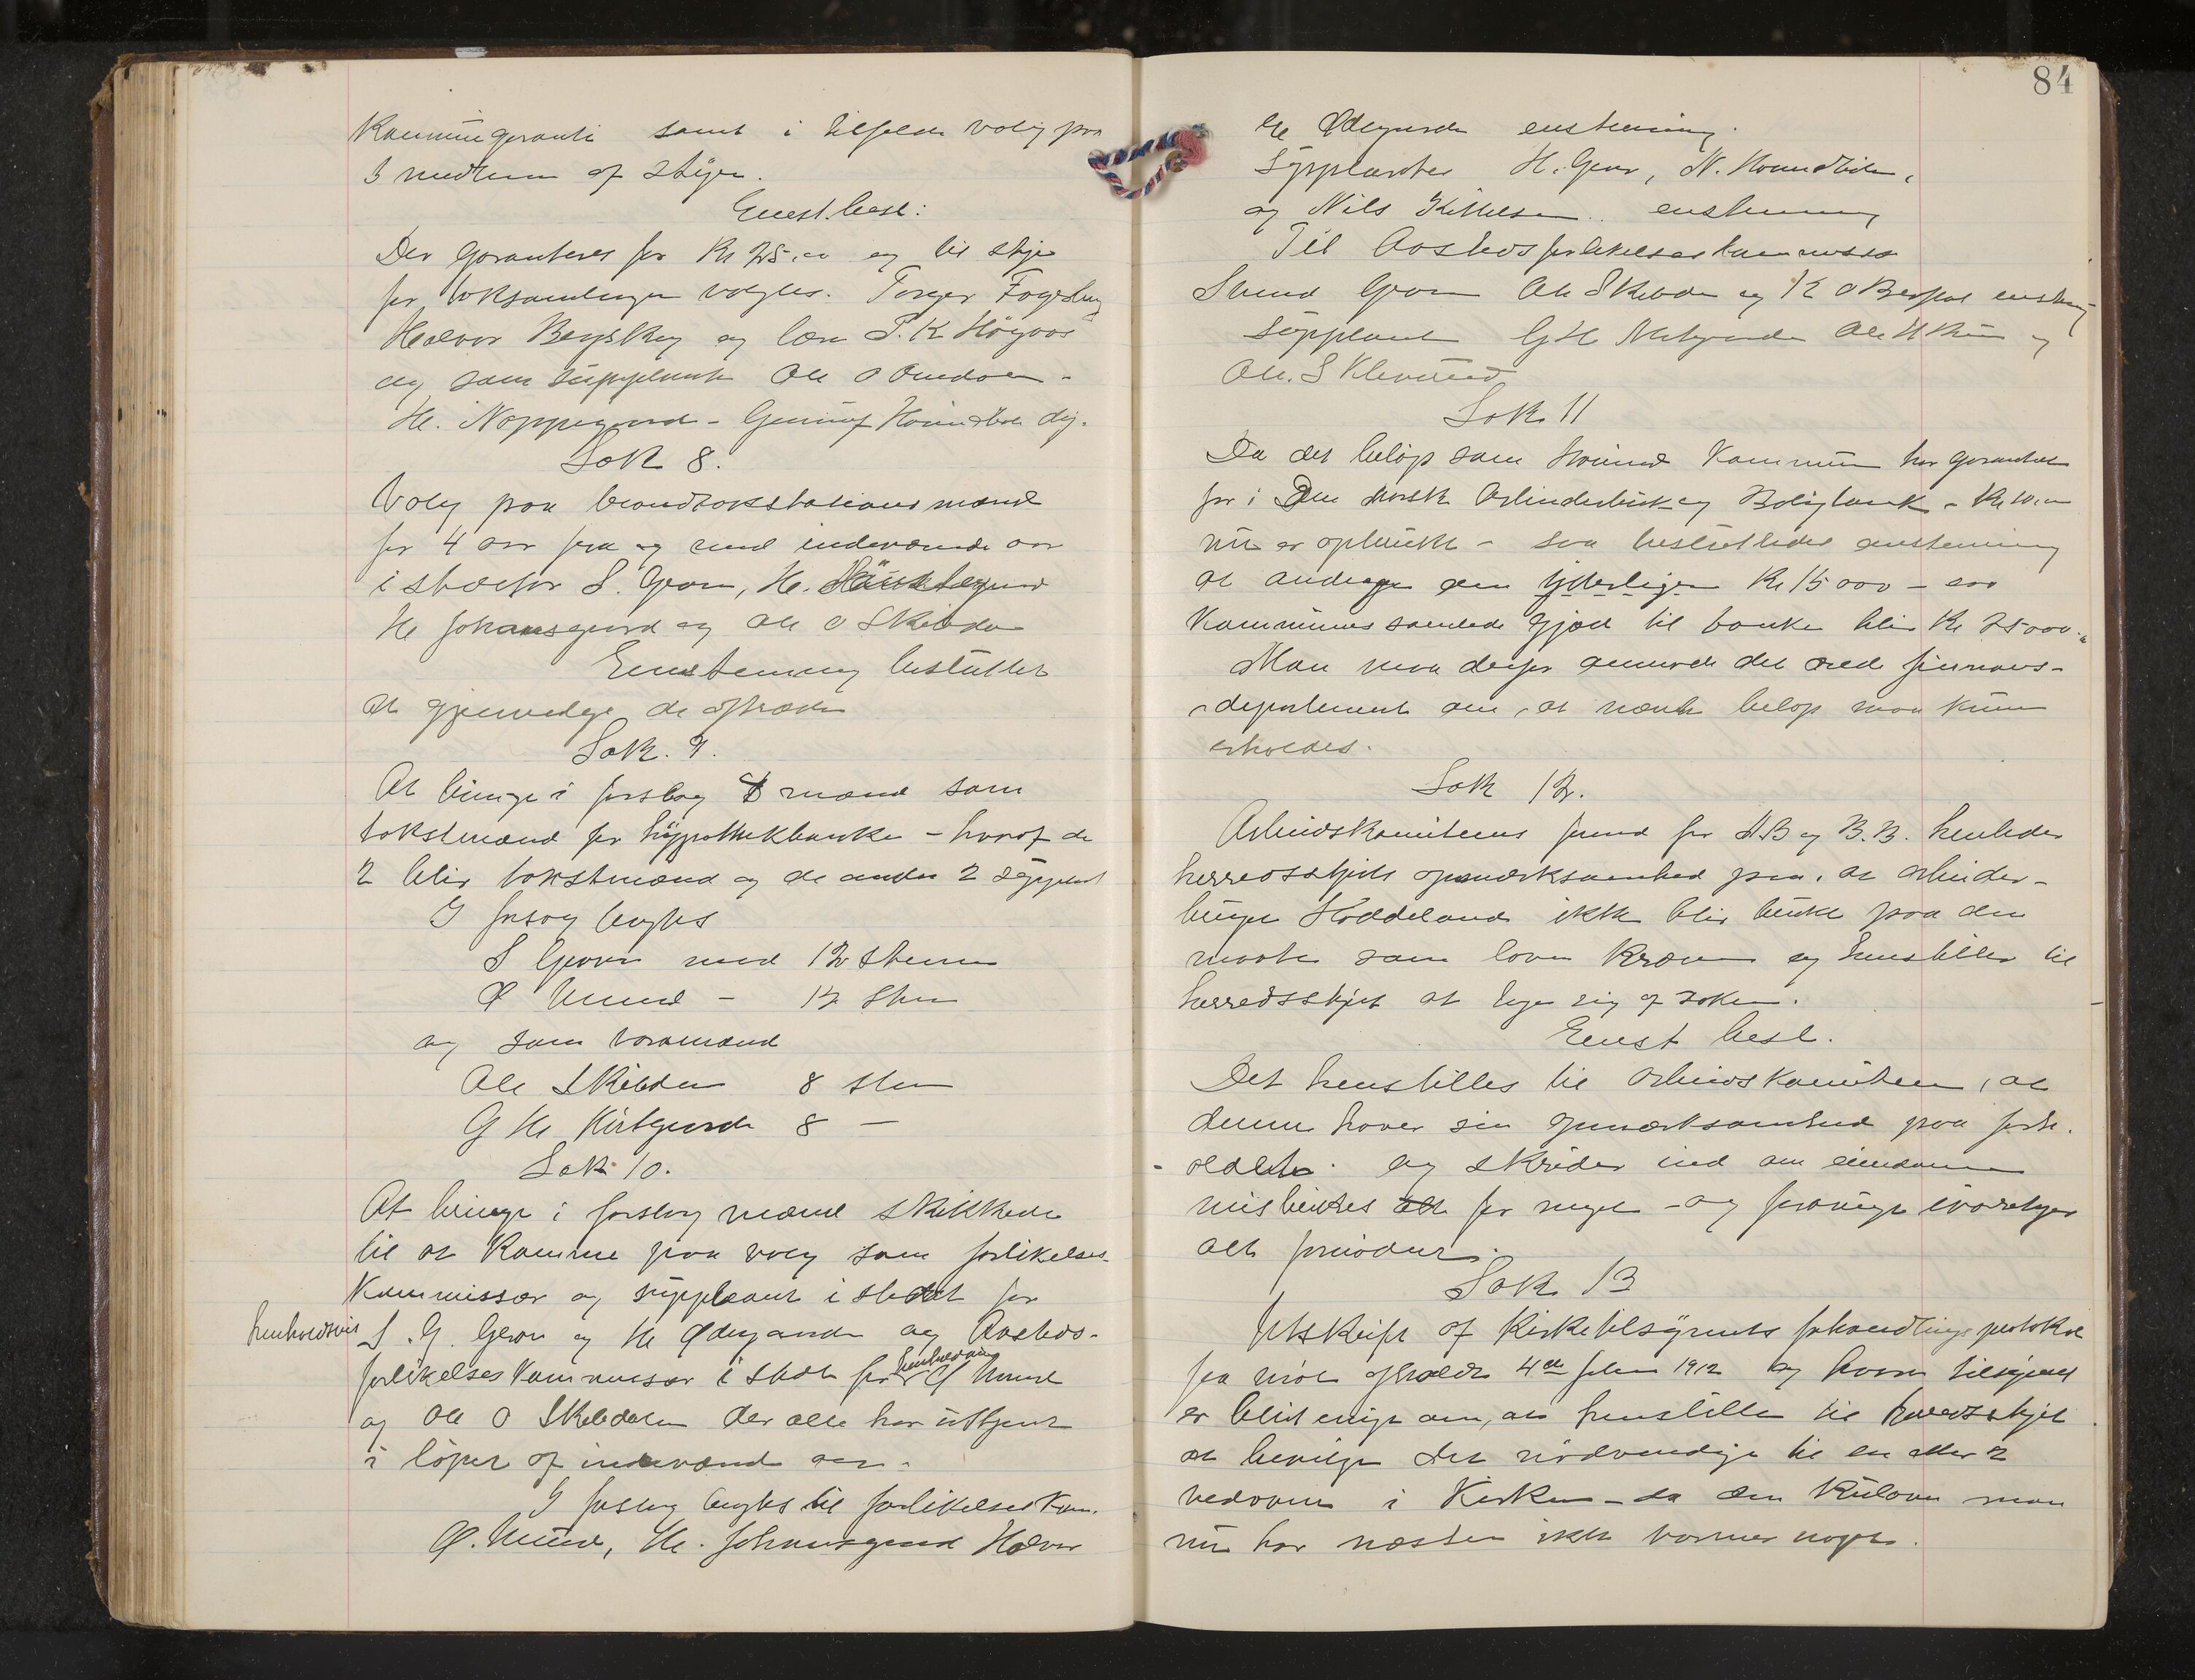 Kommungaranti samt i tilfelde valg paa
3 medlem af styre.
Enst. besl:
Der garanteres for Kr 25.00 og til styre
for boksamlingen valgtes. Torger
Halvor og lær. P. K. Høgvos
og som supplant Ole O
He. Noppegaard - Gunnuf
Sak 8.
Valg paa brandtakstationsmænd
for 4 aar fra og med indeværende aar
i stedet for S. Grove, He.
He Johansgaard og Ole O Skibdalen
Enstemmig besluttet
at gjenvælge de aftrædende
Sak. 9.
At bringe i forslag 4 mænd som
takstmænd for hypothekbanken - hvoraf de
2 blir takstmænd og de andre 2 supplant
I forslag bragtes
S Grove med 12 stemmer
Ø Uvund - 12 stem
og som varamænd
Ole Skibdalen 8 stem
G He Kirkgaarden 8 —
Sak 10.
At bringe i forslag mænd skikkede
til at komme paa valg som forlikelses-
Kommissær og supplant i stedet for
henholdsvis S. G. Grove og He Ødegaarden og Aasteds-
forlikelseskommissær i stedet for henholdsvis Ø Uvund
og Ole O Skibdalen der alle har uttjent
i løpet af indeværende aar.
I forslag bragtes til forlikelseskom.
Ø. Uvund, He. Johansgaard Halvor
84
He Ødegaarden enstemmig.
Supplanter H. Grov, N.
og Nils Kittilsen.. enstemmig
Til Aastedsforlikelseskommissær
Svend Grove Ole Skibdalen og K O enstemmig
Supplant G He Ole H og
Ole. S
Sak 11
Da det beløp som Hovind Kommun har garantert
for i Den Norsk Arbeiderbruk og Boligbank - Kr 10.000
nu er opbrukt - saa besluttedes enstemmig
at andrage om yderligere Kr 15 000 - saa
Kommunes samlede gjæld til banken blir Kr 25000.
Man maa derfor anmode det ærede finans-
departement om, at nævnte beløp maa kunne
erholdes.
Sak 12.
Arbeidskomiteens formand for A.B og B.B. henleder
herredsstyrets opmærksomhed paa, at arbeider-
bruget Hoddeland ikke blir brukt paa den
maate som loven kræver og henstiller til
herredsstyret at tage sig af saken.
Enst besl.
Det henstilles til arbeidskomiteen, at
denne haver sin opmærksomhed paa forh-
oldet. og skrider ind om eiendommen
misbrukes alt for meget - og forøvrig ivaretager
alt fornødent.
Sak 13
Utskrift af Kirketilsynets forhandlingsprotokol
fra møte afholdt 4de febr 1912 og hvori tilsynet
er blit enige om, at henstille til herredsstyret
at bevilge det nødvendige til en eller 2
vedovne i Kirken - da den Kulovn man
nu har næsten ikke varmer noget.